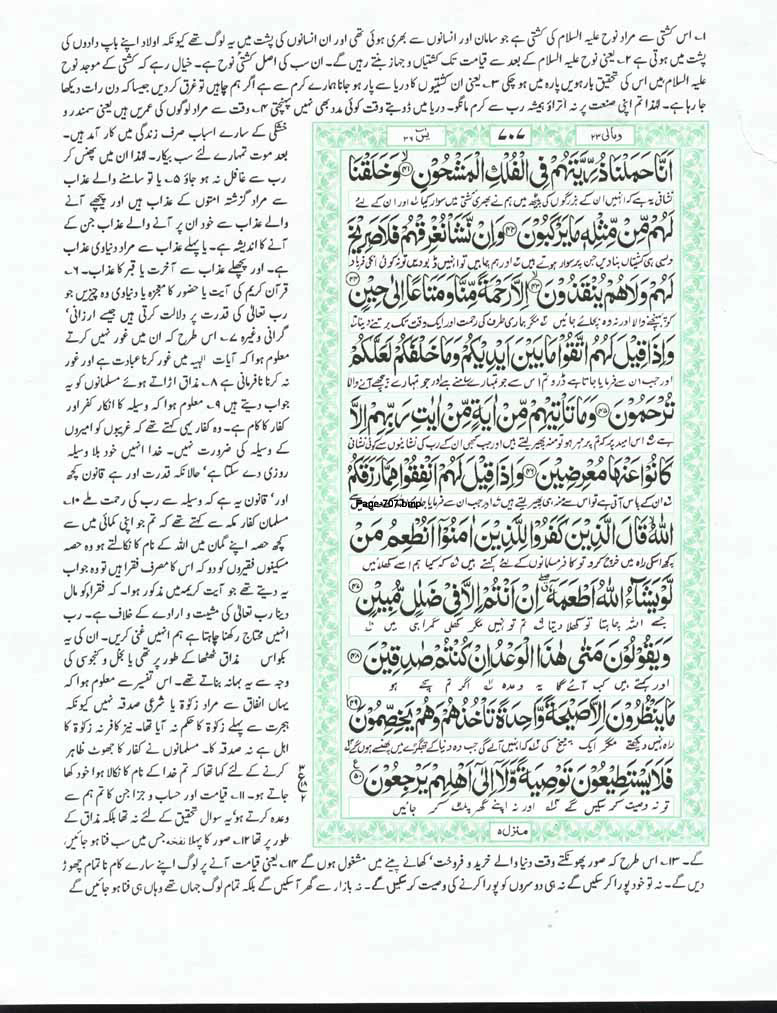 ۱۔ اس کشتی سے مراد نوح علیہ السلام کی کشتی ہے جو سامان اور انسانوں سے بھری ہوئی تھی اور ان انسانوں کی پشت میں یہ لوگ تھے کیونکہ اولاد اپنے باپ دادوں کی
پشت میں ہوتی ہے ۲۔ یعنی نوح علیہ السلام کے بعد سے قیامت تک کشتیاں و جہاز بنتے رہیں گے۔ ان سب کی اصل کشتی نوح ہے۔ خیال رہے کہ کشتی کے موجد نوح
علیہ السلام ہیں اس کی تحقیق بارہویں پارہ میں ہو چکی ۳۔ یعنی ان کشتیوں کا دریا سے پار ہو جانا ہمارے کرم سے ہے اگر ہم چاہیں تو غرق کر دیں جیسا کہ دن رات دیکھا
جا رہا ہے۔ لہٰذا تم اپنی صنعت پر نہ اتراؤ ہمیشہ رب سے کرم مانگو۔ دریا میں ڈوبتے وقت کوئی مدد بھی نہیں پہنچتی ۴۔ وقت سے مراد لوگوں کی عمریں ہیں یعنی سمندر و
خشکی کے سارے اسباب صرف زندگی میں کار آمد ہیں۔
بعد موت تمہارے لئے سب بیکار۔ لہٰذا ان میں پھنس کر
رب سے غافل نہ ہو جاؤ ۵۔ یا تو سامنے والے عذاب
سے مراد گزشتہ امتوں کے عذاب ہیں اور پیچھے آنے
والے عذاب سے خود ان پر آنے والے عذاب جن کے
آنے کا اندیشہ ہے۔ یا پہلے عذاب سے مراد دنیاوی عذاب
ہے۔ اور پچھلے عذاب سے آخرت یا قبر کا عذاب۔ ۶۔
قرآن کریم کی آیت یا حضور کا معجزہ یا دنیاوی وہ چیزیں جو
رب تعالیٰ کی قدرت پر دلالت کرتی ہیں جیسے ارزانی'
گرانی وغیرہ ۷۔ اس طرح کہ ان میں غور نہیں کرتے
معلوم ہوا کہ آیات الٰہیہ میں غور کرنا عبادت ہے اور غور
نہ کرنا نافرمانی ہے ۸۔ مذاق اڑاتے ہوئے مسلمانوں کو یہ
جواب دیتے ہیں ۹۔ معلوم ہوا کہ وسیلہ کا انکار کفر اور
کفار کا کام ہے۔ وہ کفار یہی کہتے تھے کہ غریبوں کو امیروں
کے وسیلہ کی ضرورت نہیں۔ خدا انہیں خود بلا وسیلہ
روزی دے سکتا ہے' حالانکہ قدرت اور ہے قانون کچھ
اور' قانون یہ ہے کہ وسیلہ سے رب کی رحمت ملے ۱۰۔
مسلمان کفار مکہ سے کہتے تھے کہ تم جو اپنی کمائی میں سے
کچھ حصہ اپنے گمان میں اللہ کے نام کا نکالتے ہو وہ حصہ
مسکینوں فقیروں کو دو کہ اس کا مصرف فقرا ہیں تو وہ جواب
یہ دیتے تھے جو آیت کریمہ میں مذکور ہوا۔ کہ فقرا کو مال
دینا رب تعالیٰ کی مشیت و ارادے کے خلاف ہے۔ رب
انہیں محتاج رکھنا چاہتا ہے ہم انہیں غنی کریں۔ ان کی یہ
بکواس مذاق ٹھٹھا کے طور پر تھی یا بخل و کنجوسی کی
وجہ سے یہ بہانہ بناتے تھے۔ اس تفسیر سے معلوم ہوا کہ
یہاں انفاق سے مراد زکوٰة یا شرعی صدقہ نہیں کیونکہ
ہجرت سے پہلے زکوٰة کا حکم نہ آیا تھا۔ نیز کافر نہ زکوٰة کا
اہل ہے نہ صدقہ کا۔ مسلمانوں نے کفار کا جھوٹ ظاہر
کرنے کے لئے کہا تھا کہ تم خدا کے نام کا نکالا ہوا خود کھا
جاتے ہو۔ ۱۱۔ قیامت اور حساب و جزا جن کا تم ہم سے
وعدہ کرتے ہو' یہ سوال تحقیق کے لئے نہ تھا بلکہ مذاق کے
طور پر تھا ۱۲۔ صور کا پہلا نفخہ جس میں سب فنا ہو جائیں
گے۔ ۱۳۔ اس طرح کہ صور پھونکتے وقت دنیا والے خرید و فروخت' کھانے پینے میں مشغول ہوں گے ۱۴۔ یعنی قیامت آنے پر لوگ اپنے سارے کام نا تمام چھوڑ
دیں گے۔ نہ تو خود پورا کر سکیں گے نہ ہی دوسروں کو پورا کرنے کی وصیت کر سکیں گے۔ نہ بازار سے گھر آ سکیں گے بلکہ تمام لوگ جہاں تھے وہاں ہی فنا ہو جائیں گے
ومالی ۲۳ ۷۰۷ یٰسٓ ۳۶
اَنَّا حَمَلْنَا ذُرِّيَّتَهُمْ فِي الْفُلْكِ الْمَشْحُوْنِ ﴿۴۱﴾ وَخَلَقْنَا
نشانی یہ ہے کہ انہیں ان کے بزرگوں کی پیٹھ میں ہم نے بھری کشتی میں سوار کیا اور ان کے لئے
لَهُمْ مِّنْ مِّثْلِهٖ مَا يَرْكَبُوْنَ ﴿۴۲﴾ وَاِنْ نَّشَاْ نُغْرِقْهُمْ فَلَا صَرِيْخَ
ویسی ہی کشتیاں بنا دیں جن پر سوار ہوتے ہیں اور ہم چاہیں تو انہیں ڈبو دیں تو نہ کوئی انکی فریاد
لَهُمْ وَلَا هُمْ يُنْقَذُوْنَ ﴿۴۳﴾ اِلَّا رَحْمَةً مِّنَّا وَمَتَاعًا اِلٰى حِيْنٍ ﴿۴۴﴾
کو پہنچنے والا اور نہ وہ بچائے جائیں مگر ہماری طرف کی رحمت اور ایک وقت تک برتنے دینا
وَاِذَا قِيْلَ لَهُمُ اتَّقُوْا مَا بَيْنَ اَيْدِيْكُمْ وَمَا خَلْفَكُمْ لَعَلَّكُمْ
اور جب ان سے فرمایا جاتا ہے ڈرو تم اس سے جو تمہارے سامنے ہے اور جو تمہارے پیچھے آنے والا
تُرْحَمُوْنَ ﴿۴۵﴾ وَمَا تَاْتِيْهِمْ مِّنْ اٰيَةٍ مِّنْ اٰيٰتِ رَبِّهِمْ اِلَّا
ہے اس امید پر کہ تم پر مہر ہو تو منہ پھیر لیتے ہیں اور جب کبھی ان کے رب کی نشانیوں سے کوئی نشانی
كَانُوْا عَنْهَا مُعْرِضِيْنَ ﴿۴۶﴾ وَاِذَا قِيْلَ لَهُمْ اَنْفِقُوْا مِمَّا رَزَقَكُمُ
ان کے پاس آتی ہے تو اس سے منہ ہی پھیر لیتے ہیں اور جب ان سے فرمایا
Page-707.bmp
اللّٰهُ قَالَ الَّذِيْنَ كَفَرُوْا لِلَّذِيْنَ اٰمَنُوْٓا اَنُطْعِمُ مَنْ
کچھ اسکی راہ میں خرچ کرو تو کافر مسلمانوں کے لئے کہتے ہیں کہ کیا ہم اسے کھلائیں
لَّوْ يَشَآءُ اللّٰهُ اَطْعَمَهٗٓ اِنْ اَنْتُمْ اِلَّا فِيْ ضَلٰلٍ مُّبِيْنٍ ﴿۴۷﴾
جسے اللہ چاہتا تو کھلا دیتا تم تو نہیں مگر کھلی گمراہی میں
وَيَقُوْلُوْنَ مَتٰى هٰذَا الْوَعْدُ اِنْ كُنْتُمْ صٰدِقِيْنَ ﴿۴۸﴾
اور کہتے ہیں کب آئے گا یہ وعدہ اگر تم سچے ہو
مَا يَنْظُرُوْنَ اِلَّا صَيْحَةً وَّاحِدَةً تَاْخُذُهُمْ وَهُمْ يَخِصِّمُوْنَ ﴿۴۹﴾
راہ نہیں دیکھتے مگر ایک چیخ کی کہ انہیں آلے گی جب وہ دنیا کے جھگڑے میں پھنسے ہوں گے
فَلَا يَسْتَطِيْعُوْنَ تَوْصِيَةً وَّلَآ اِلٰٓى اَهْلِهِمْ يَرْجِعُوْنَ ﴿۵۰﴾
تو نہ وصیت کر سکیں گے اور نہ اپنے گھر پلٹ کر جائیں
منزل ۵